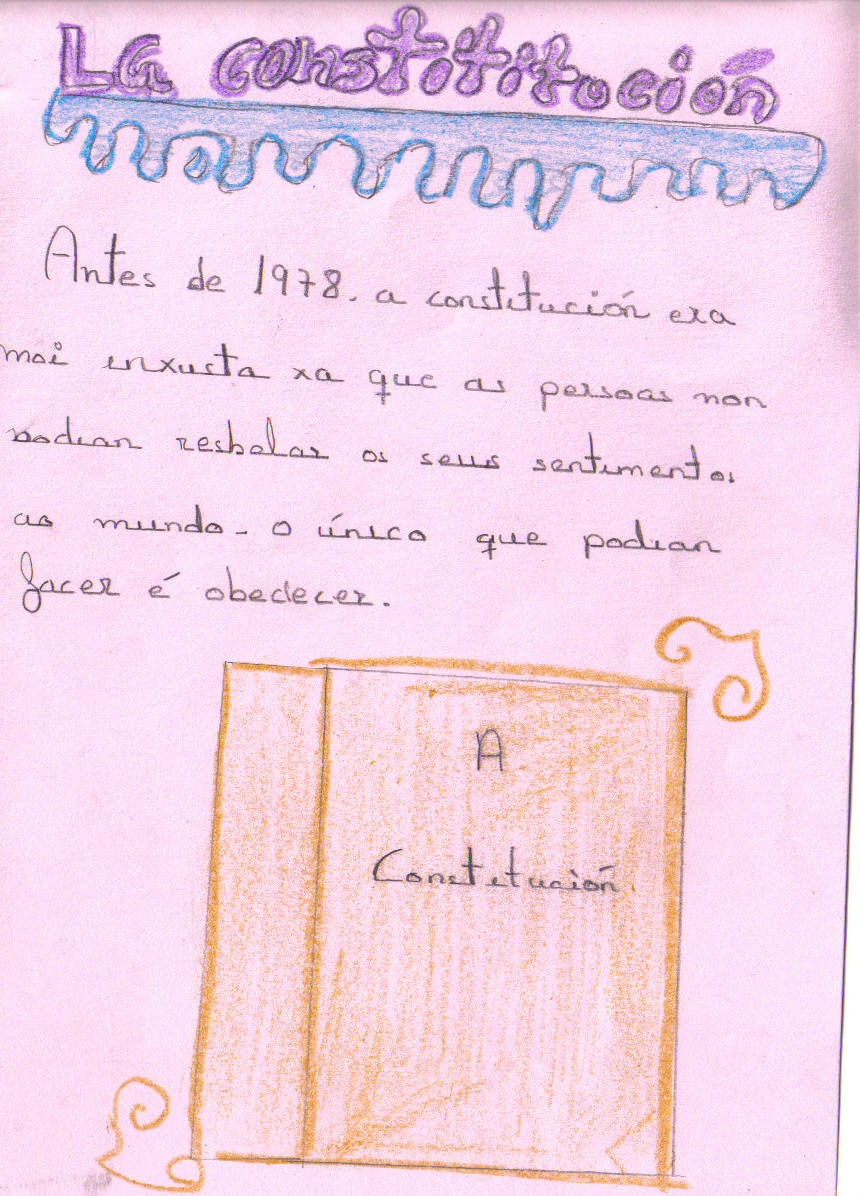 La constititución
Antes de 1978. a constitución era
moi inxusta xa que as persoas non
podian resbelar os seus sentimentos
ao mundo. o único que podian
facer é obedecer.
A
Constitución